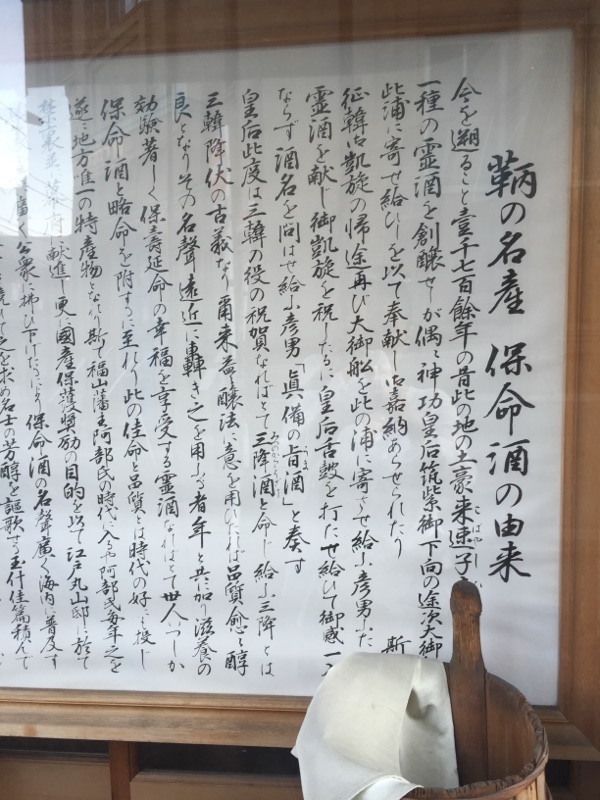 鞆の名産 保命酒の由来
今を遡ること壹千七百餘年の昔此の地の土豪来速子
とはやし
一種の霊酒を創醸せしが偶々神功皇后筑紫御下向の途次大御
此浦に寄せ給ひしを以て奉献し御嘉納あらせられたり 斯
征韓御凱旋の帰途再び大御船を此の浦に寄させ給ふ彦男ふた
霊酒を献じ御凱旋を祝したるに皇后舌鼓を打たせ給ひて御感一
ならず酒名を問はせ給ふ彦男「眞備の旨酒」と奏す
皇后此度は三韓の役の祝賀なればとて三降酒と命じ給ふ三降とは
三韓降伏の古義なり爾来益々醸法に意を用ひたれば品質愈々醇
良となりその名聲遠近に轟き之を用ふる者年と共に加り滋養の
効驗著しく保壽延命の幸福を享受する霊酒なればとて世人いつしか
保命酒と略命を附するに至れり此の佳命と品質とは時代の好に投じ
遂に地方唯一の特産物となれり斯て福山藩主阿部氏の時代に入るや阿部氏毎年之を
禁裏並に幕府に献進し更に國産保護奨励の目的を以て江戸丸山邸に於て
廣く公衆に拂ひ下げたるにより保命酒の名聲廣く海内に普及す
て之を求め名士の芳醇を謳歌せる玉什佳篇積んで